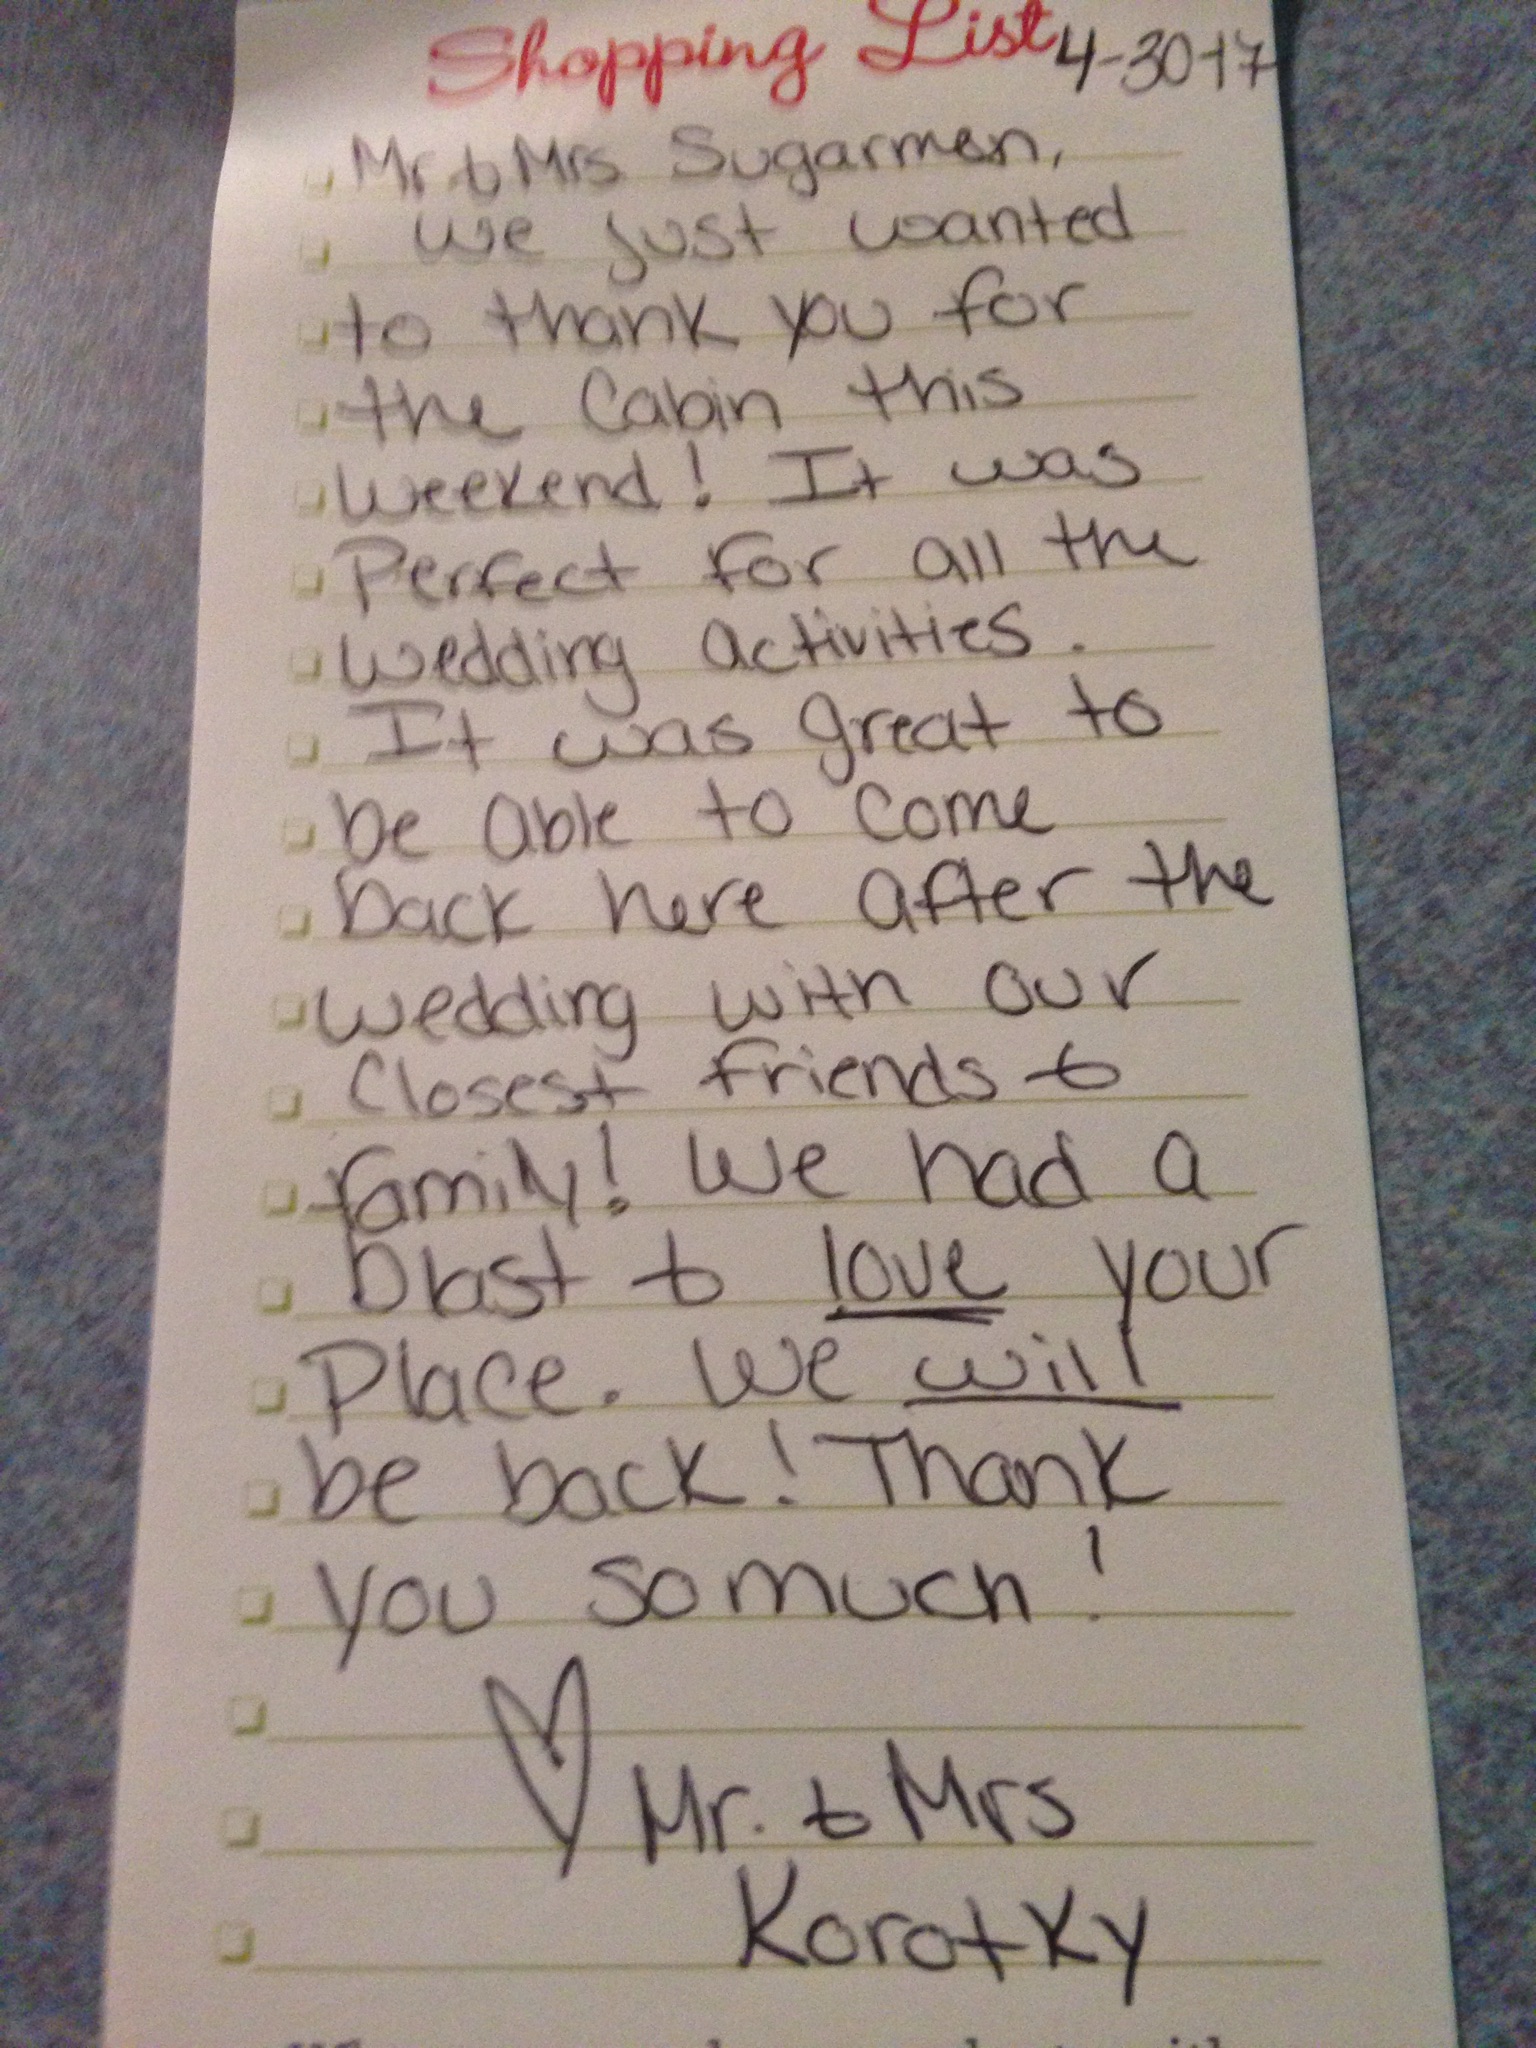 Shopping List 4-30-17
Mr. & Mrs Sugarman,
We just wanted
to thank you for
the Cabin this
weekend! It was
Perfect for all the
wedding activities.
It was great to
be able to come
back here after the
wedding with our
Closest friends &
family! We had a
blast & love your
Place. We will
be back! Thank
you so much!
♡ Mr. & Mrs
Korotky